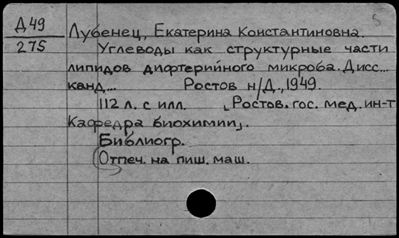 5
Д49 Лубенец, Екатерина Константиновна.
275 Углеводы как структурные части
липидов дифтерийного микроба. Дисс...
канд... Ростов н/Д., 1949.
112 л. с илл. [Ростов. гос. мед. ин-т
Кафедра биохимии].
Библиогр.
Отпеч. на пиш. маш.